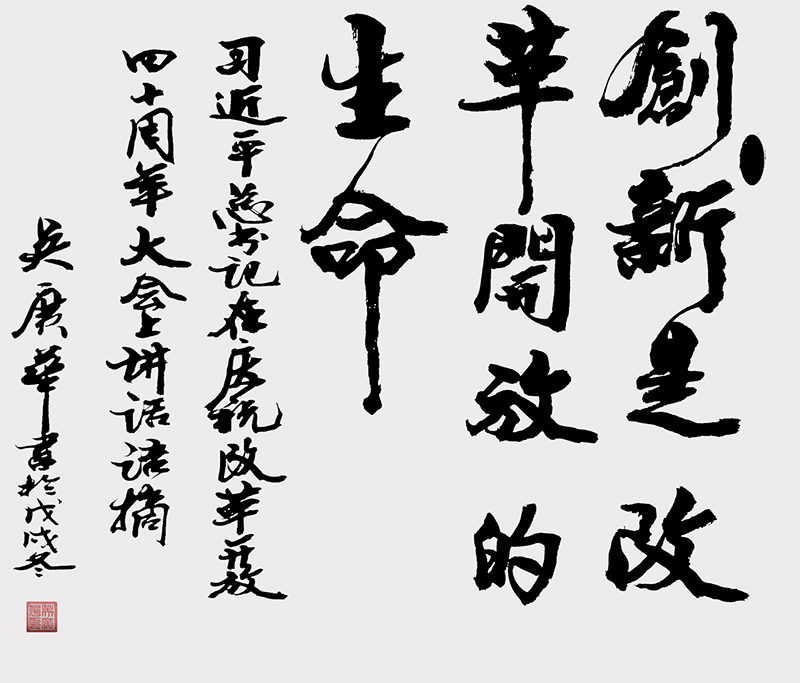 創新是改
革開放的
生命
习近平总书记在庆祝改革开放
四十周年大会上讲话语摘
吴庆華書於戊戌冬